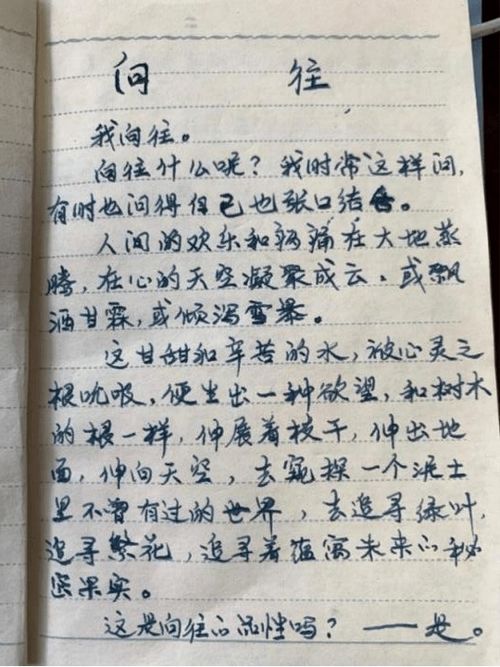 向往
我向往。
向往什么呢？我时常这样问，
有时也问得自己也张口结舌。
人间的欢乐和病痛在大地蒸
腾，在心的天空凝聚成云，或飘
洒甘霖，或倾泻雪暴。
这甘甜和辛苦的水，被心灵之
根吮吸，便生出一种欲望，和树木
的根一样，伸展着枝干，伸出地
面，伸向天空，去窥探一个泥土
里不曾有过的世界，去追寻绿叶，
追寻繁花，追寻着蕴寓未来的秘
密果实。
这是向往的品性吗？——是。